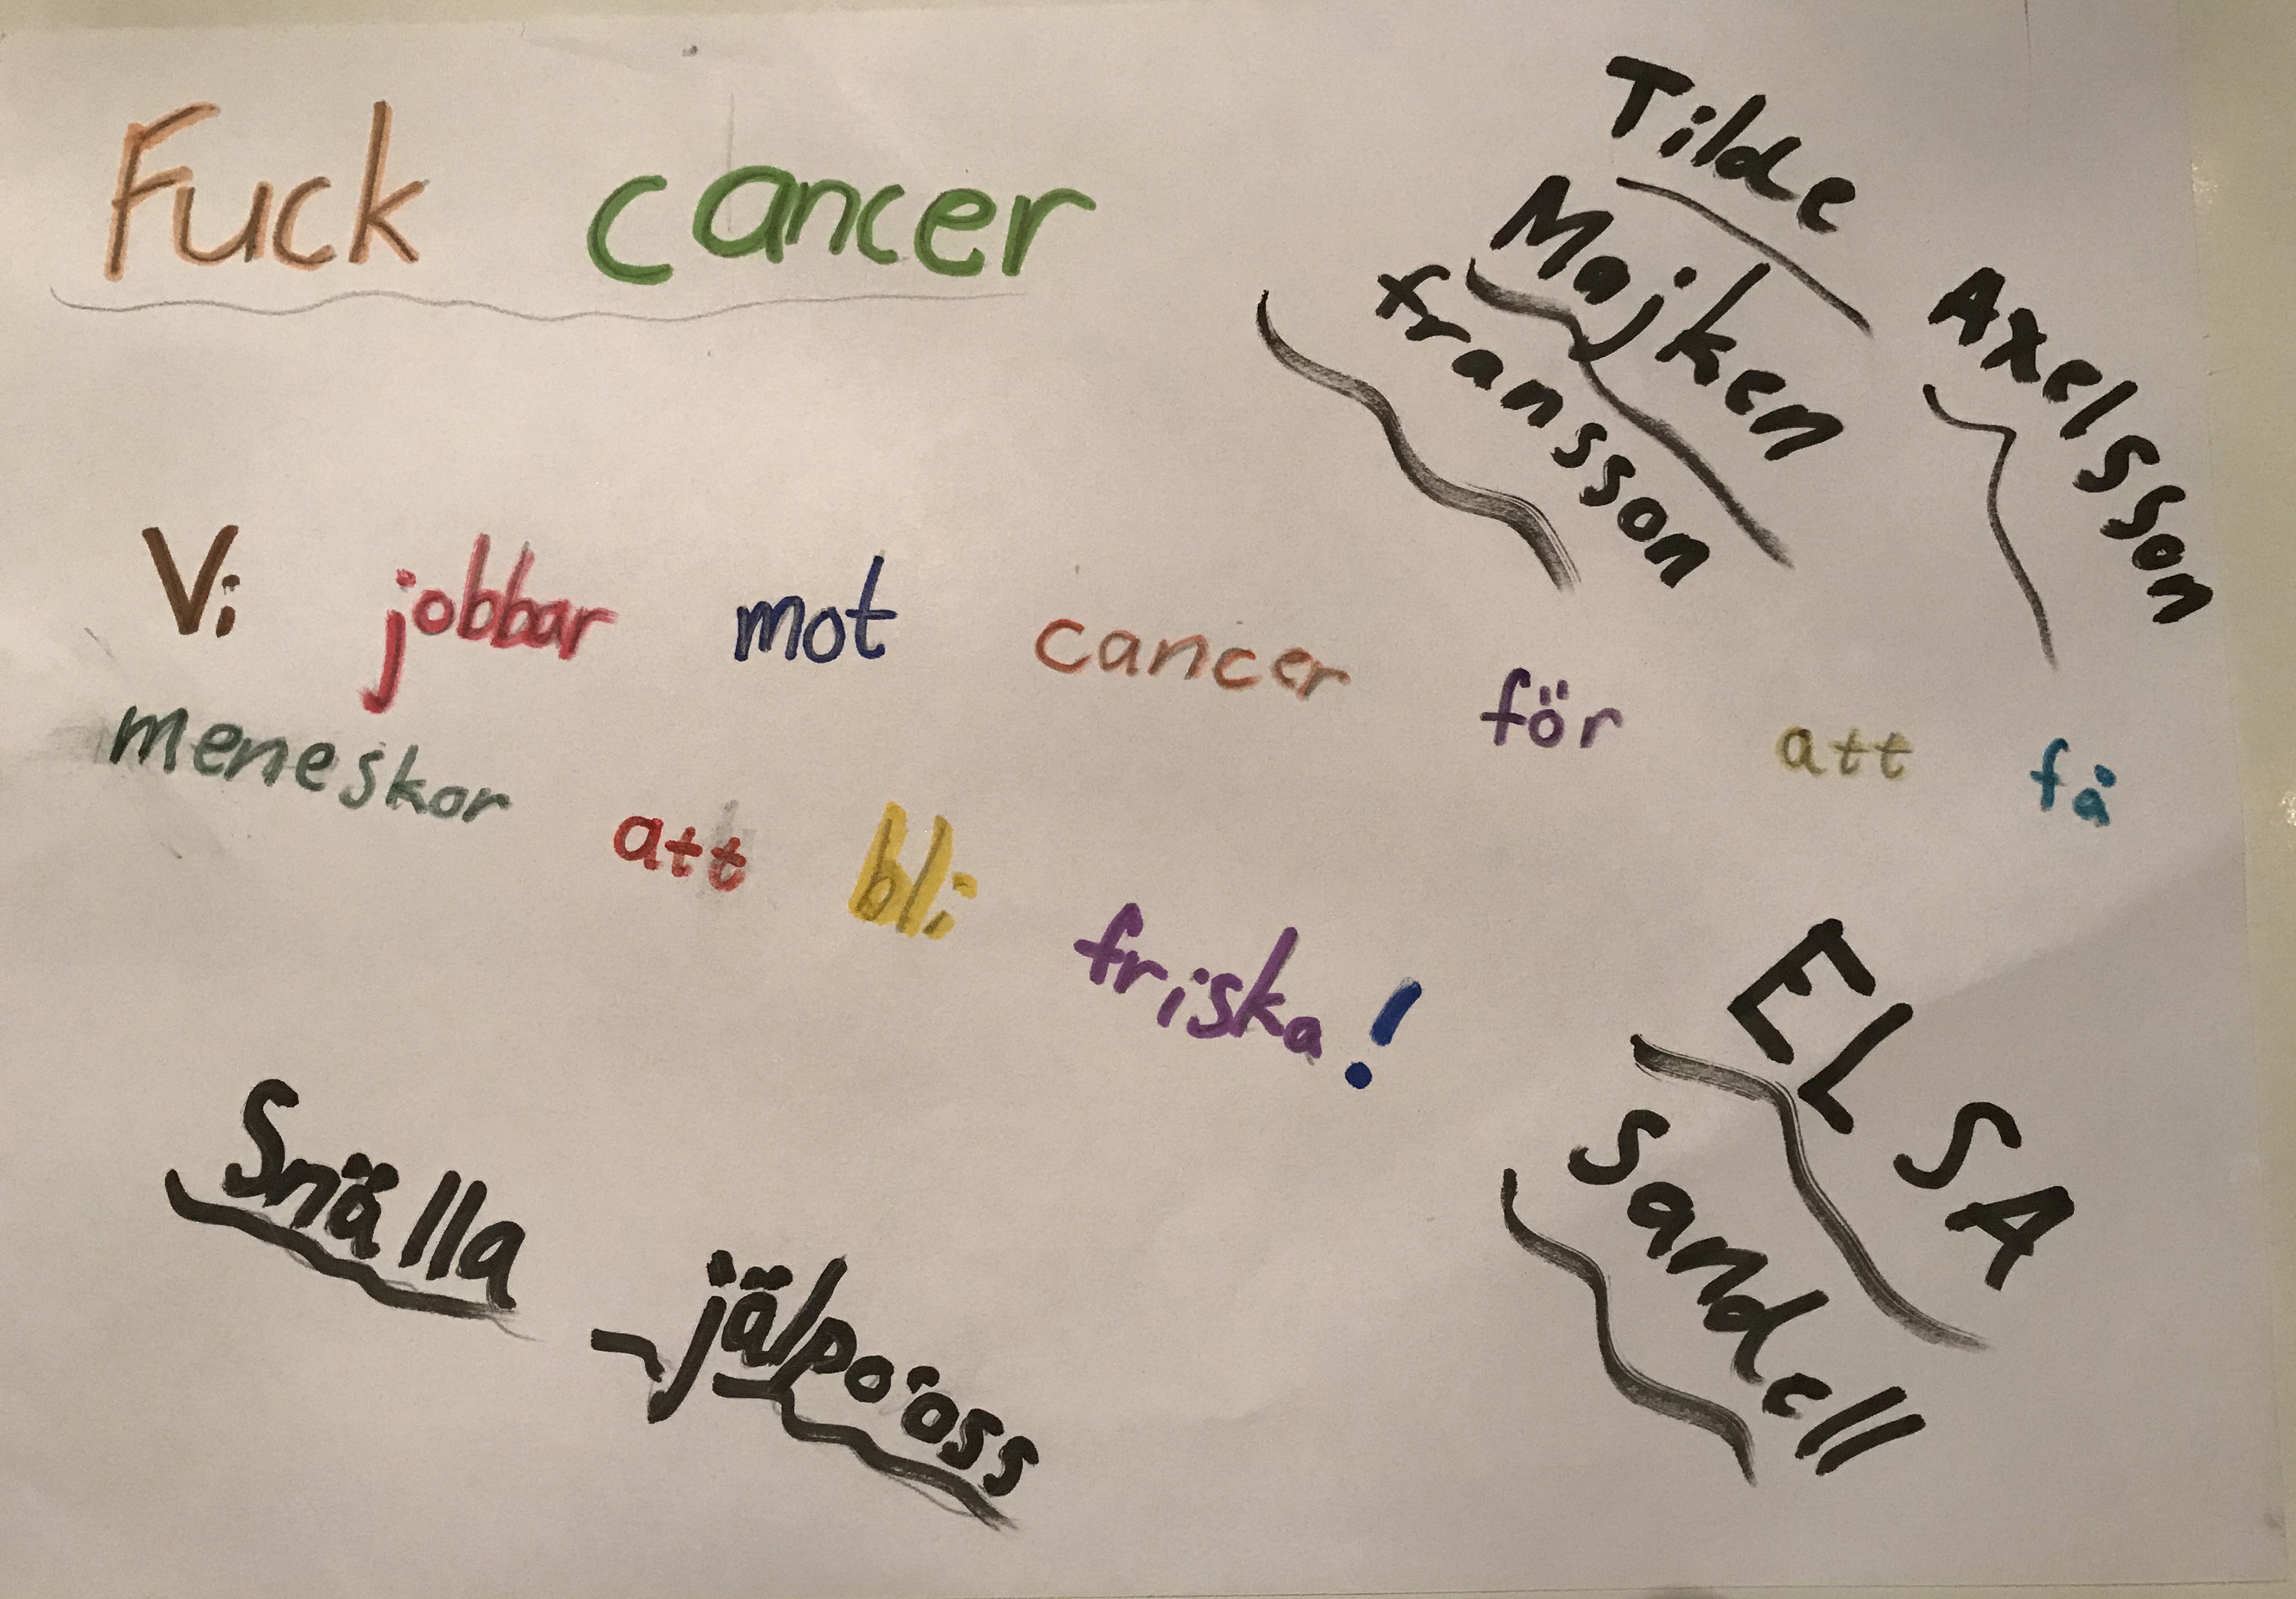 Fuck cancer
Tilde
Axelsson
Majken
fransson
Vi jobbar mot cancer för att få
meneskor att bli friska!
ELSA
Sandell
Snälla
jälpoöss